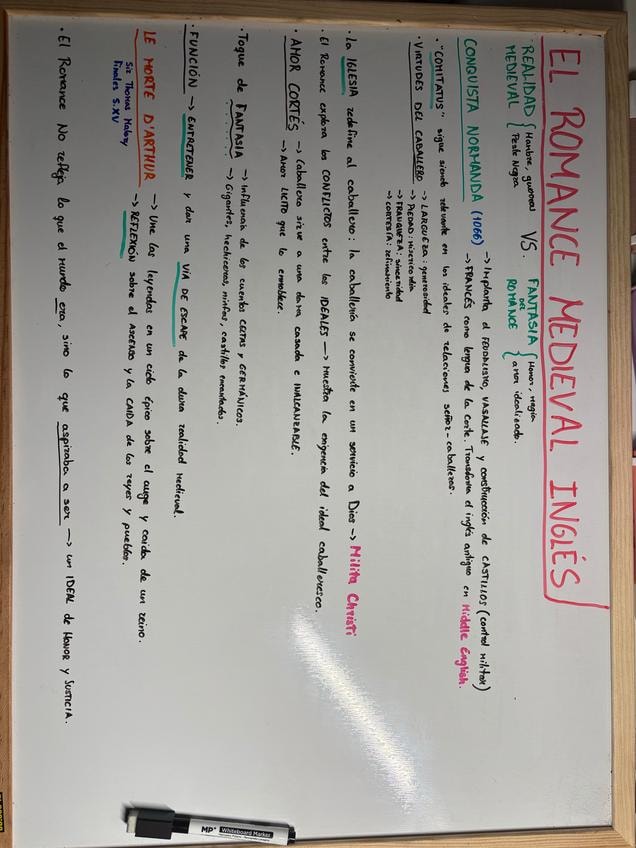 EL ROMANCE MEDIEVAL INGLÉS
REALIDAD MEDIEVAL { Hambre, guerras Peste Negra
VS.
FANTASIA DEL ROMANCE { Honor, magia amor idealizado.
CONQUISTA NORMANDA (1066) → Implanta el FEUDALISMO, VASALLAJE y construcción de CASTILLOS (control militar)
→ FRANCÉS como lengua de la Corte. Transforma el inglés antiguo en Middle English.
· "COMITATUS" sigue siendo relevante en los ideales de relaciones señor-caballeros.
· VIRTUDES DEL CABALLERO → LARGUEZA: generosidad
→ PIEDAD: misericordia
→ FRANQUEZA: sinceridad
→ CORTESÍA: refinamiento
· La IGLESIA redefine al caballero: la caballería se convierte en un servicio a Dios → Milita Christi
· El Romance explora los CONFLICTOS entre los IDEALES → muestra la exigencia del ideal caballeresco.
· AMOR CORTÉS → Caballero sirve a una dama casada e INALCANZABLE.
→ Amor LICITO que lo ennoblece.
· Toque de FANTASIA → Influencia de los cuentos CELTAS y GERMÁNICOS.
→ Gigantes, hechiceros, ninfas, castillos encantados.
· FUNCIÓN → ENTRETENER y dar una VÍA DE ESCAPE de la dura realidad medieval.
LE MORTE D'ARTHUR → Une las leyendas en un ciclo épico sobre el auge y caída de un reino.
Sir Thomas Malory
Finales S.XV
→ REFLEXIÓN sobre el ASCENSO y la CAÍDA de los reyes y pueblos.
· El Romance NO refleja lo que el mundo era, sino lo que aspiraba a ser → un IDEAL de HONOR y JUSTICIA.
MP Whiteboard Marker